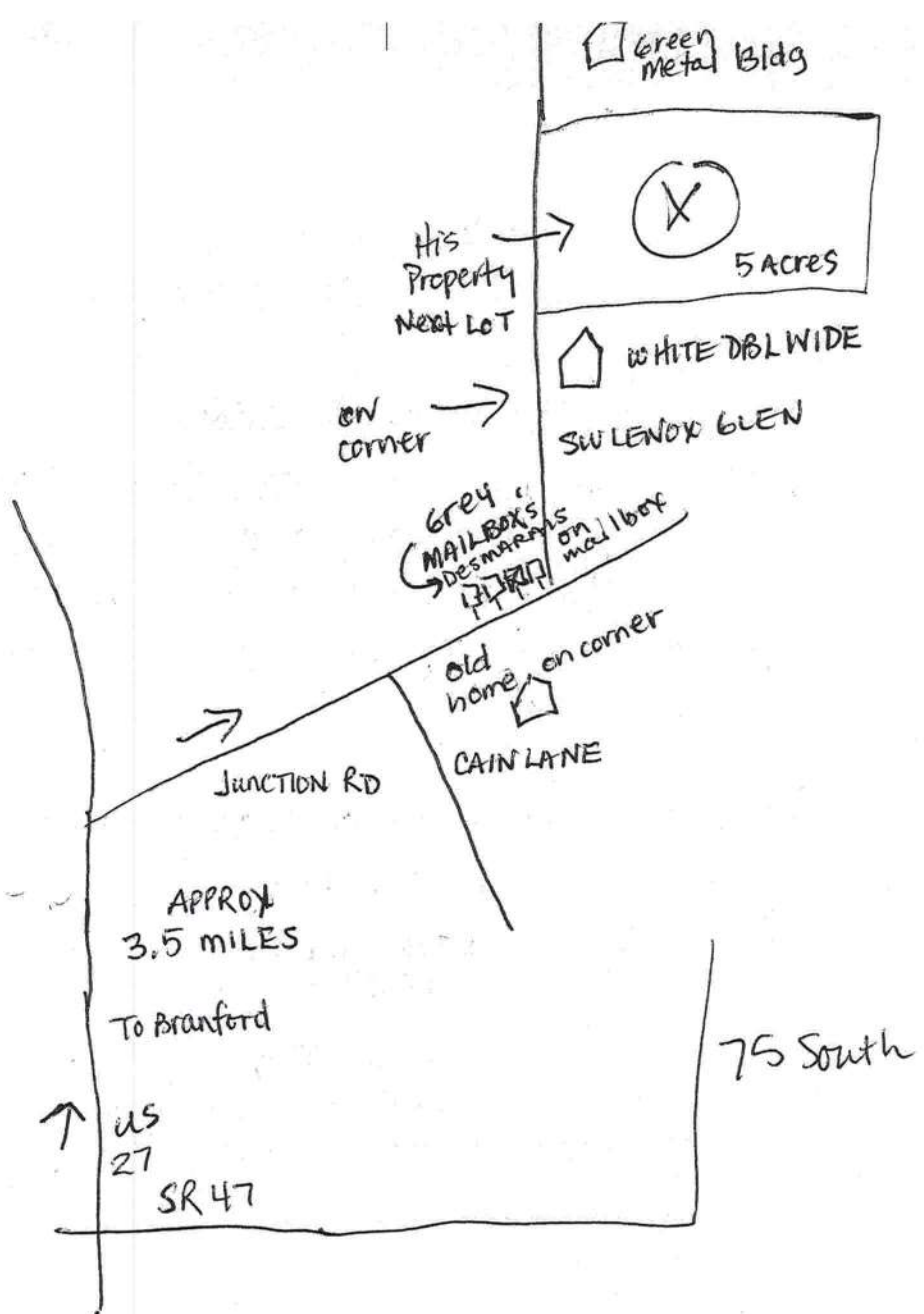 Green
metal Bldg
X
5 Acres
His
Property
Next LOT
WHITE DBL WIDE
ON
corner
SW LENOX GLEN
Grey
MAILBOX'S
DESMARAIS
on
mailbox
old
home on corner
CAIN LANE
JUNCTION RD
APPROX
3.5 MILES
To Branford
75 South
US
27
SR 47